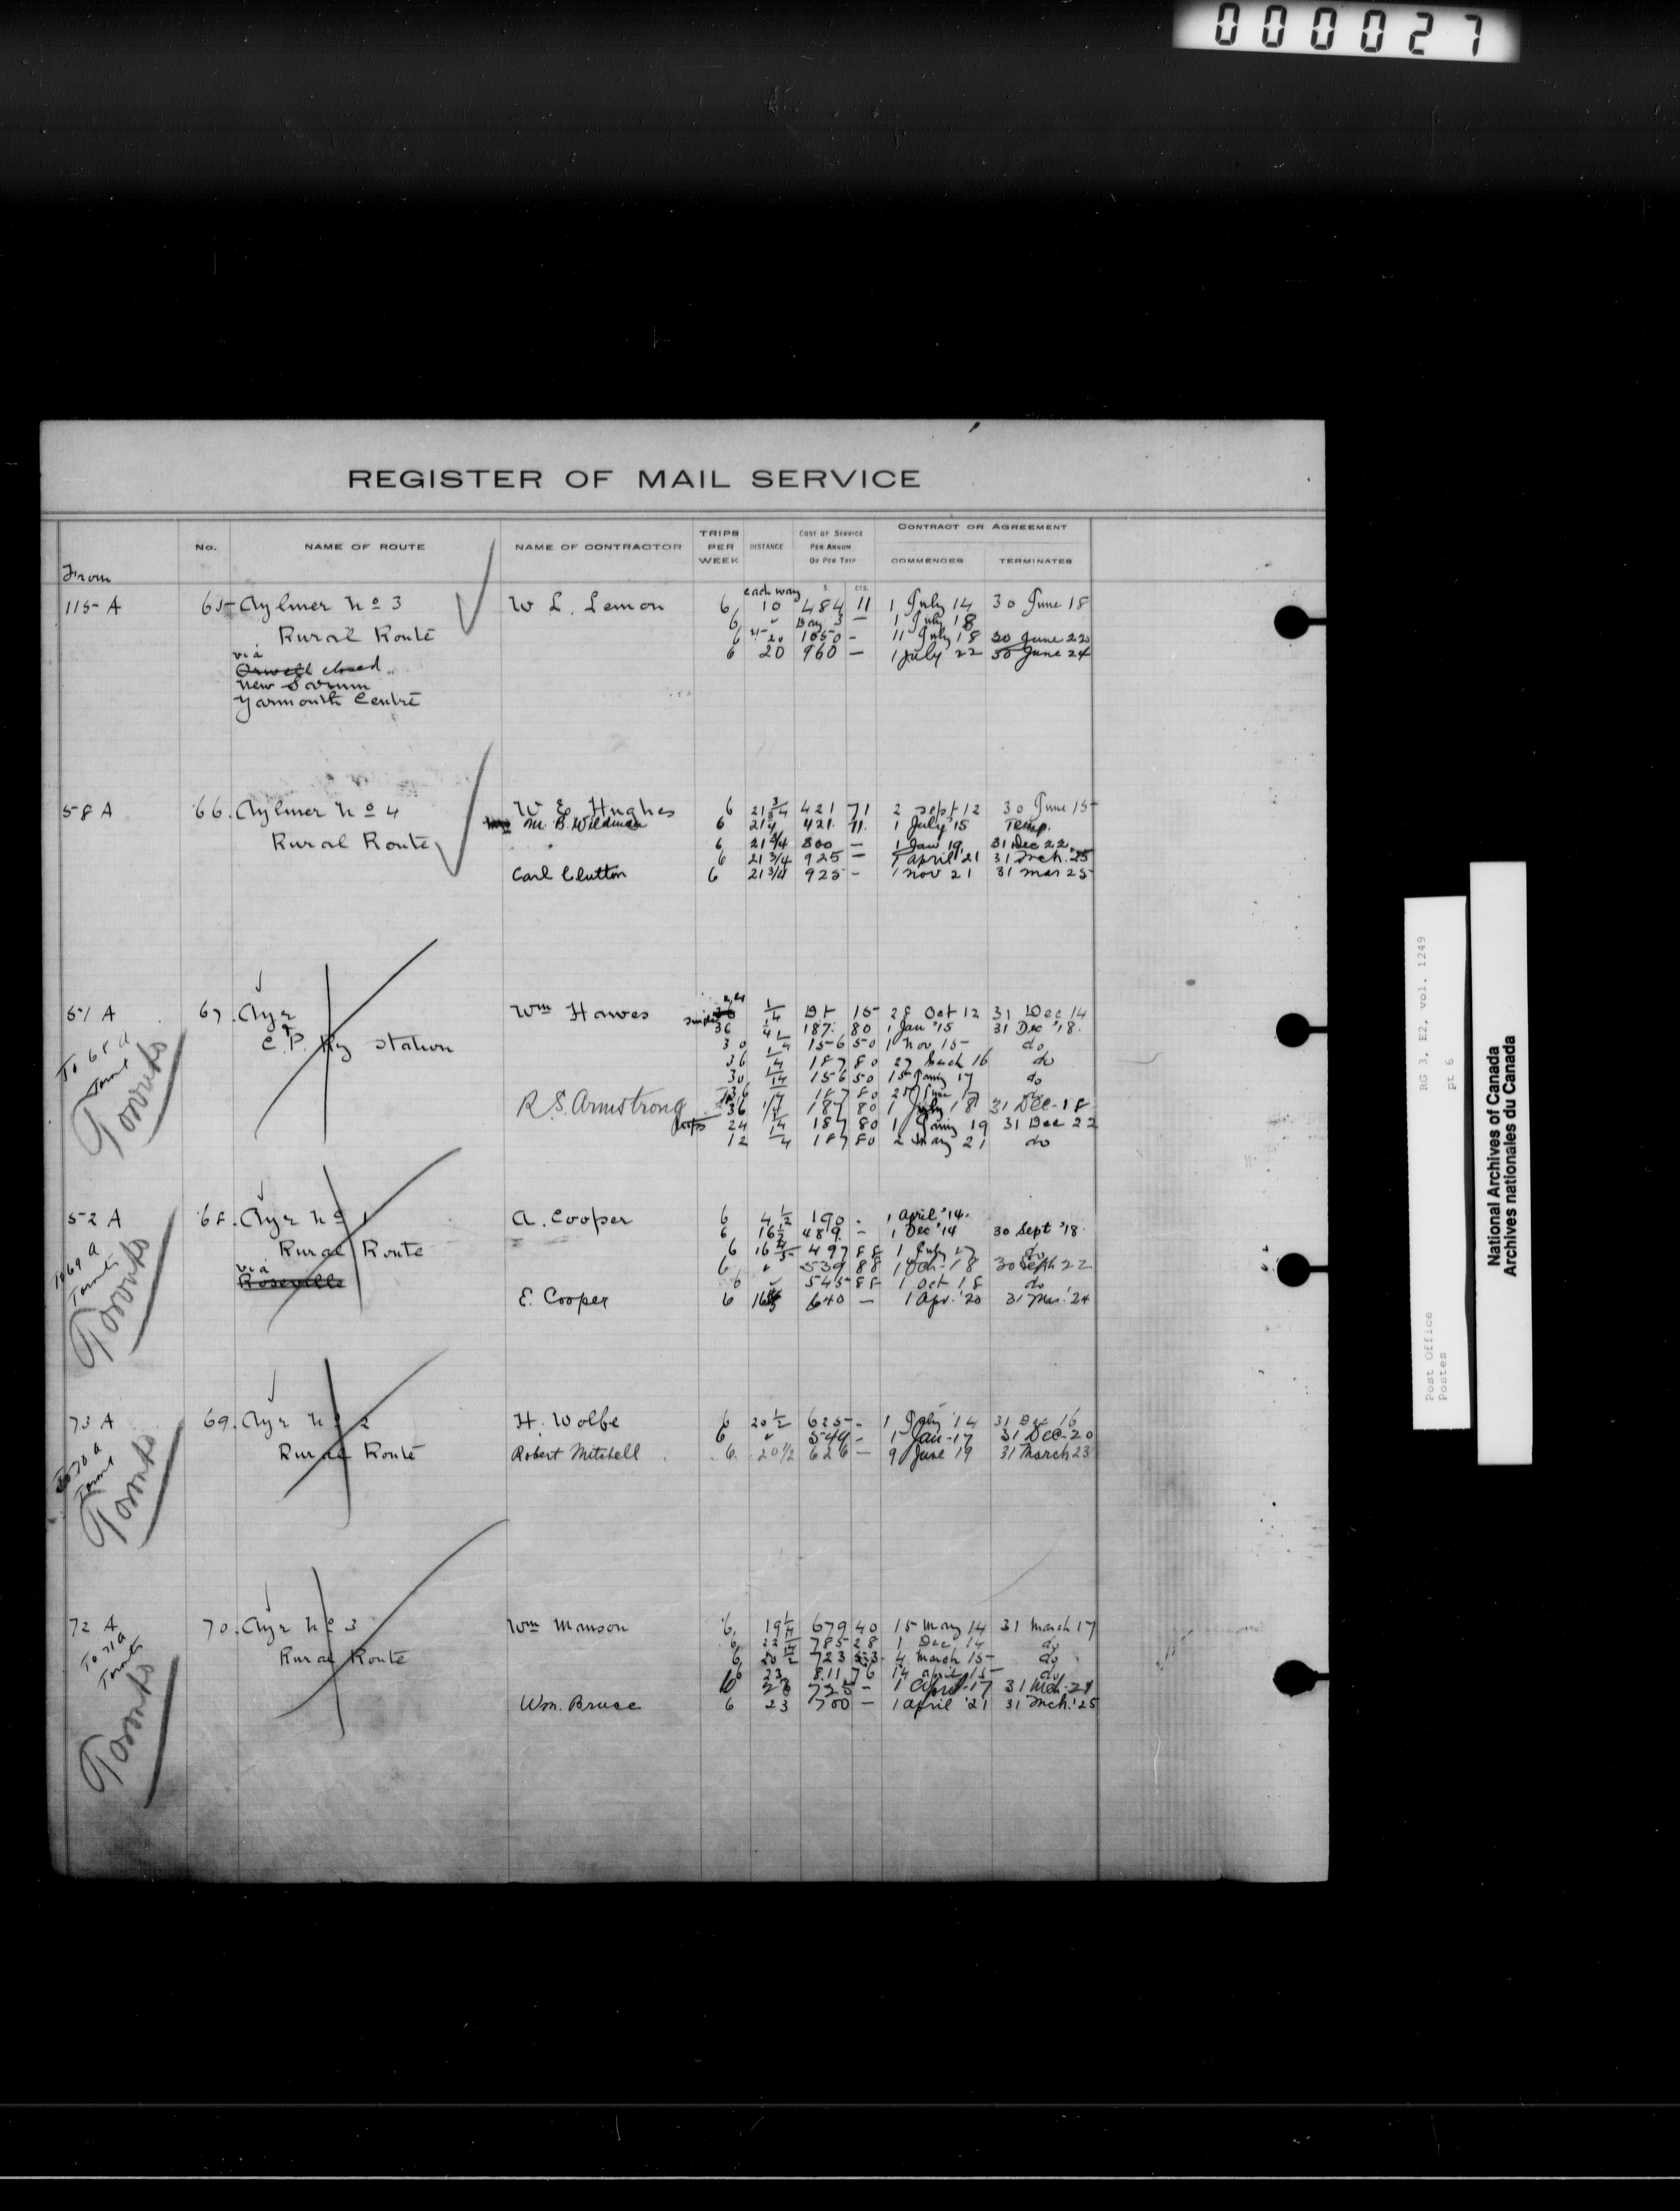 000027
REGISTER OF MAIL SERVICE
From
No.
NAME OF ROUTE
NAME OF CONTRACTOR
TRIPS PER WEEK
DISTANCE
COST OF SERVICE PER ANNUM OR PER TRIP
CONTRACT OR AGREEMENT
COMMENCES TERMINATES
$ CTS.
each way
115 A 65 Aylmer No 3 W L. Lemon 6 10 484 11 1 July 14 30 June 18
Rural Route 6 " Day 3 — 1 July 18
6 20 1050 - 11 July 18 30 June 22
via 6 20 960 — 1 July 22 30 June 24
Orwell closed
New Sarum
Yarmouth Centre
58 A 66. Aylmer No 4 W E Hughes 6 21 3/4 421 71 2 Sept 12 30 June 15
M. B. Wildman 6 21 3/4 421. 71. 1 July '15 Temp.
Rural Route 6 21 3/4 800 — 1 Jan 19 31 Dec 22
6 21 3/4 925 — 1 April 21 31 Mch. 25
Carl Clutton 6 21 3/4 925 - 1 Nov 21 31 Mar 25
51 A 67. Ayr Wm Hawes 1/4 15 28 Oct 12 31 Dec 14
& 36 187. 80 1 Jan '15 31 Dec '18.
C. P. Ry Station 30 1/4 156 50 1 Nov. 15 do
To 68 a 36 1/4 187 80 27 March 16 do
Toronto 30 1/4 156 50 15 Jany 17 do
R. S. Armstrong 36 1/4 187 80 1 July 18 31 Dec-18
24 1/4 187 80 1 Jany 19 31 Dec 22
12 1/4 187 80 2 May 21 do
52 A 68. Ayr No 1 A. Cooper 6 4 1/2 190 - 1 April '14.
6 16 1/2 489. - 1 Dec '14 30 Sept '18.
Rural Route 6 497 88 1 July 17 do
via 6 " 539 88 1 Oct-18 30 Sept 22
Roseville 6 " 545 88 1 Oct 18 do
E. Cooper 6 640 — 1 Apr. '20 31 Mar. '24
To 69 a
Toronto
Toronto
73 A 69. Ayr No 2 H. Wolfe 6 20 1/2 625 - 1 July '14 31 Dec 16
6 " 544 - 1 Jan-17 31 Dec-20
Rural Route Robert Mitchell 6 20 1/2 626 — 9 June 19 31 March 23
To 70 a
Toronto
72 A 70. Ayr No 3 Wm Manson 6 19 1/4 679 40 15 May 14 31 March 17
6 22 1/4 785 28 1 Dec. 14 do
Rural Route 6 20 1/2 723 4 March 15 do
6 23 811 76 14 April 15 do
6 23 725 - 1 April-17 31 Mch-21
Wm. Bruce 6 23 700 — 1 April '21 31 Mch. '25
To 71 a
Toronto
Toronto
Post Office RG 3, E2, vol. 1249
Postes pt 6
National Archives of Canada
Archives nationales du Canada